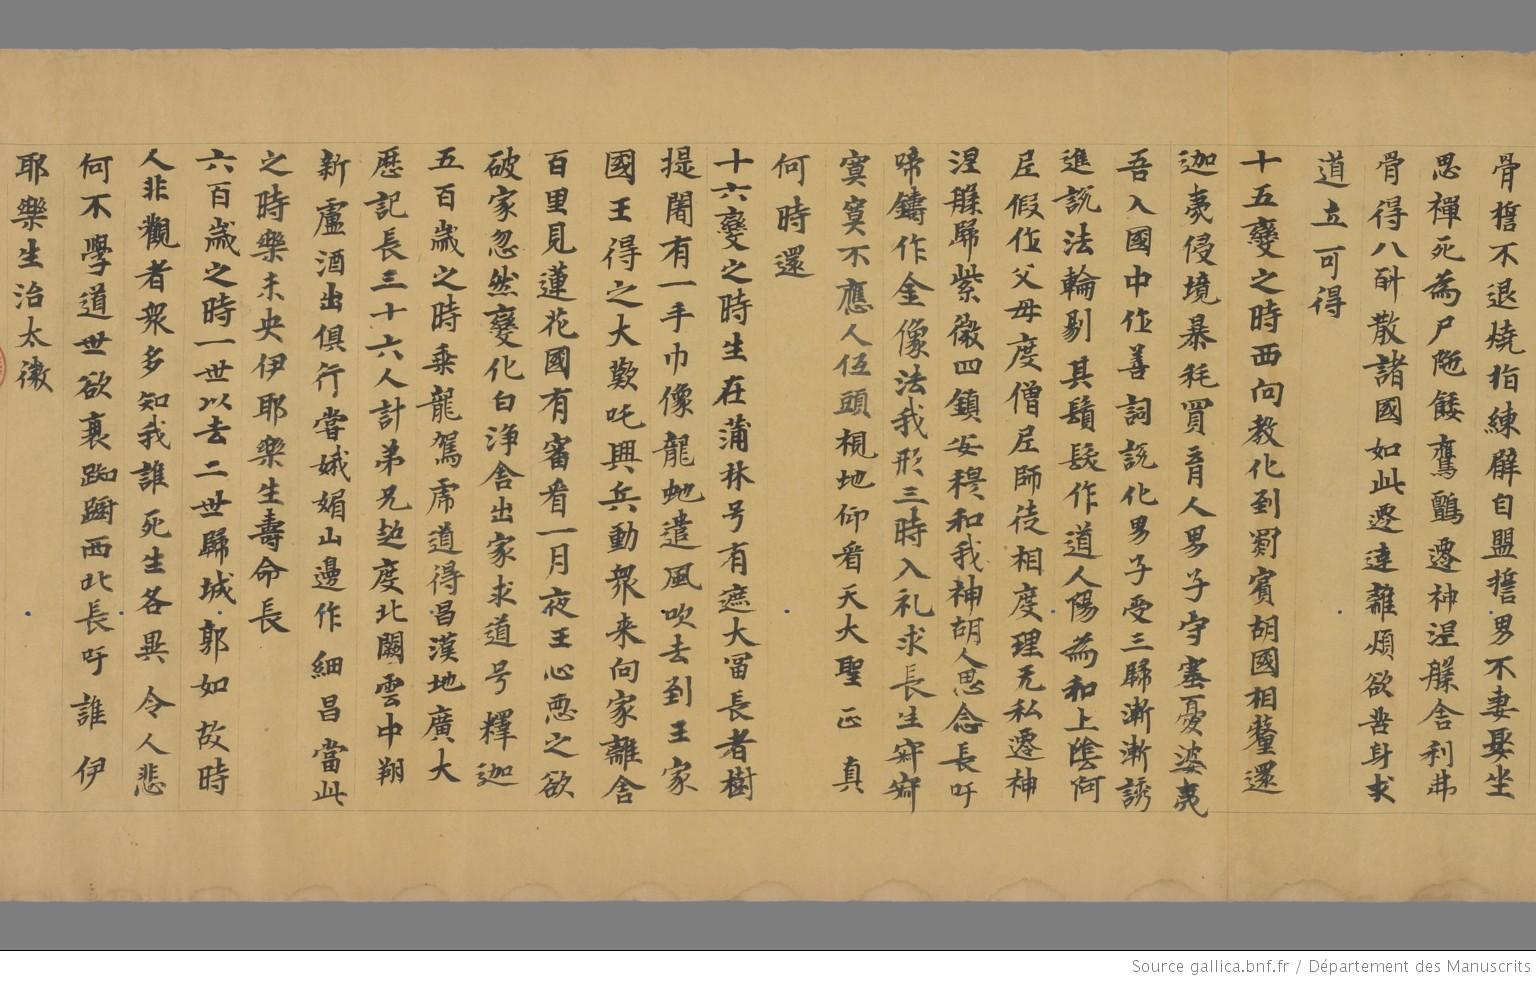 骨擔不退燒指練臂自盟擔男不妻娶坐
思禪死為尸陁餧鷹鸇遷神涅槃舍利弗
骨得八斛散諸國如此遷達離煩欲苦身求
道立可得
十五變之時西向教化到罽賓胡國相釐還
迦夷侵境暴耗買育人男子守塞憂婆夷
吾入國中作善詞說化男子受三歸漸漸誘
進說法輪剔其鬚髮作道人陽為和上陰阿
尼假作父母度僧尼師徒相度理無私遷神
涅槃歸紫微四鎮安穆和我神胡人思念長吁
啼鑄作金像法我形三時入礼求長生穽穽
寞寞不應人伍頭視地仰看天大聖正真
何時還
十六變之時生在蒲林号有遮大富長者樹
提闍有一手巾像龍虵遣風吹去到王家
國王得之大歎吒興兵動眾来向家離舍
百里見蓮花國有審看一月夜王心惡之欲
破家忽然變化白淨舍出家求道号釋迦
五百歲之時乘龍駕虎道得昌漢地廣大
歷記長三十六人計弟兄起度北闕雲中翔
新盧酒出俱行當娥媚山邊作細昌當此
之時樂未央伊耶樂生壽命長
六百歲之時一世以去二世歸城郭如故時
人非觀者眾多知我誰死生各異令人悲
何不學道世欲衰踟躕西北長吁誰伊
耶樂生治太微
Source gallica.bnf.fr / Département des Manuscrits